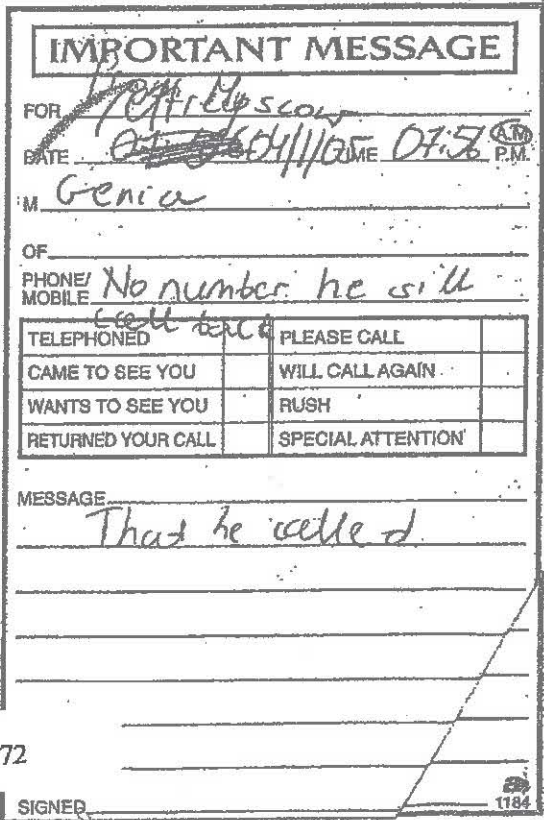 IMPORTANT MESSAGE
FOR
DATE 04/1/05 TIME 07:56 A.M.
P.M.
M Genia
OF
PHONE/
MOBILE No number he will
call back
TELEPHONED PLEASE CALL
CAME TO SEE YOU WILL CALL AGAIN
WANTS TO SEE YOU RUSH
RETURNED YOUR CALL SPECIAL ATTENTION
MESSAGE
That he called
72
SIGNED
1184